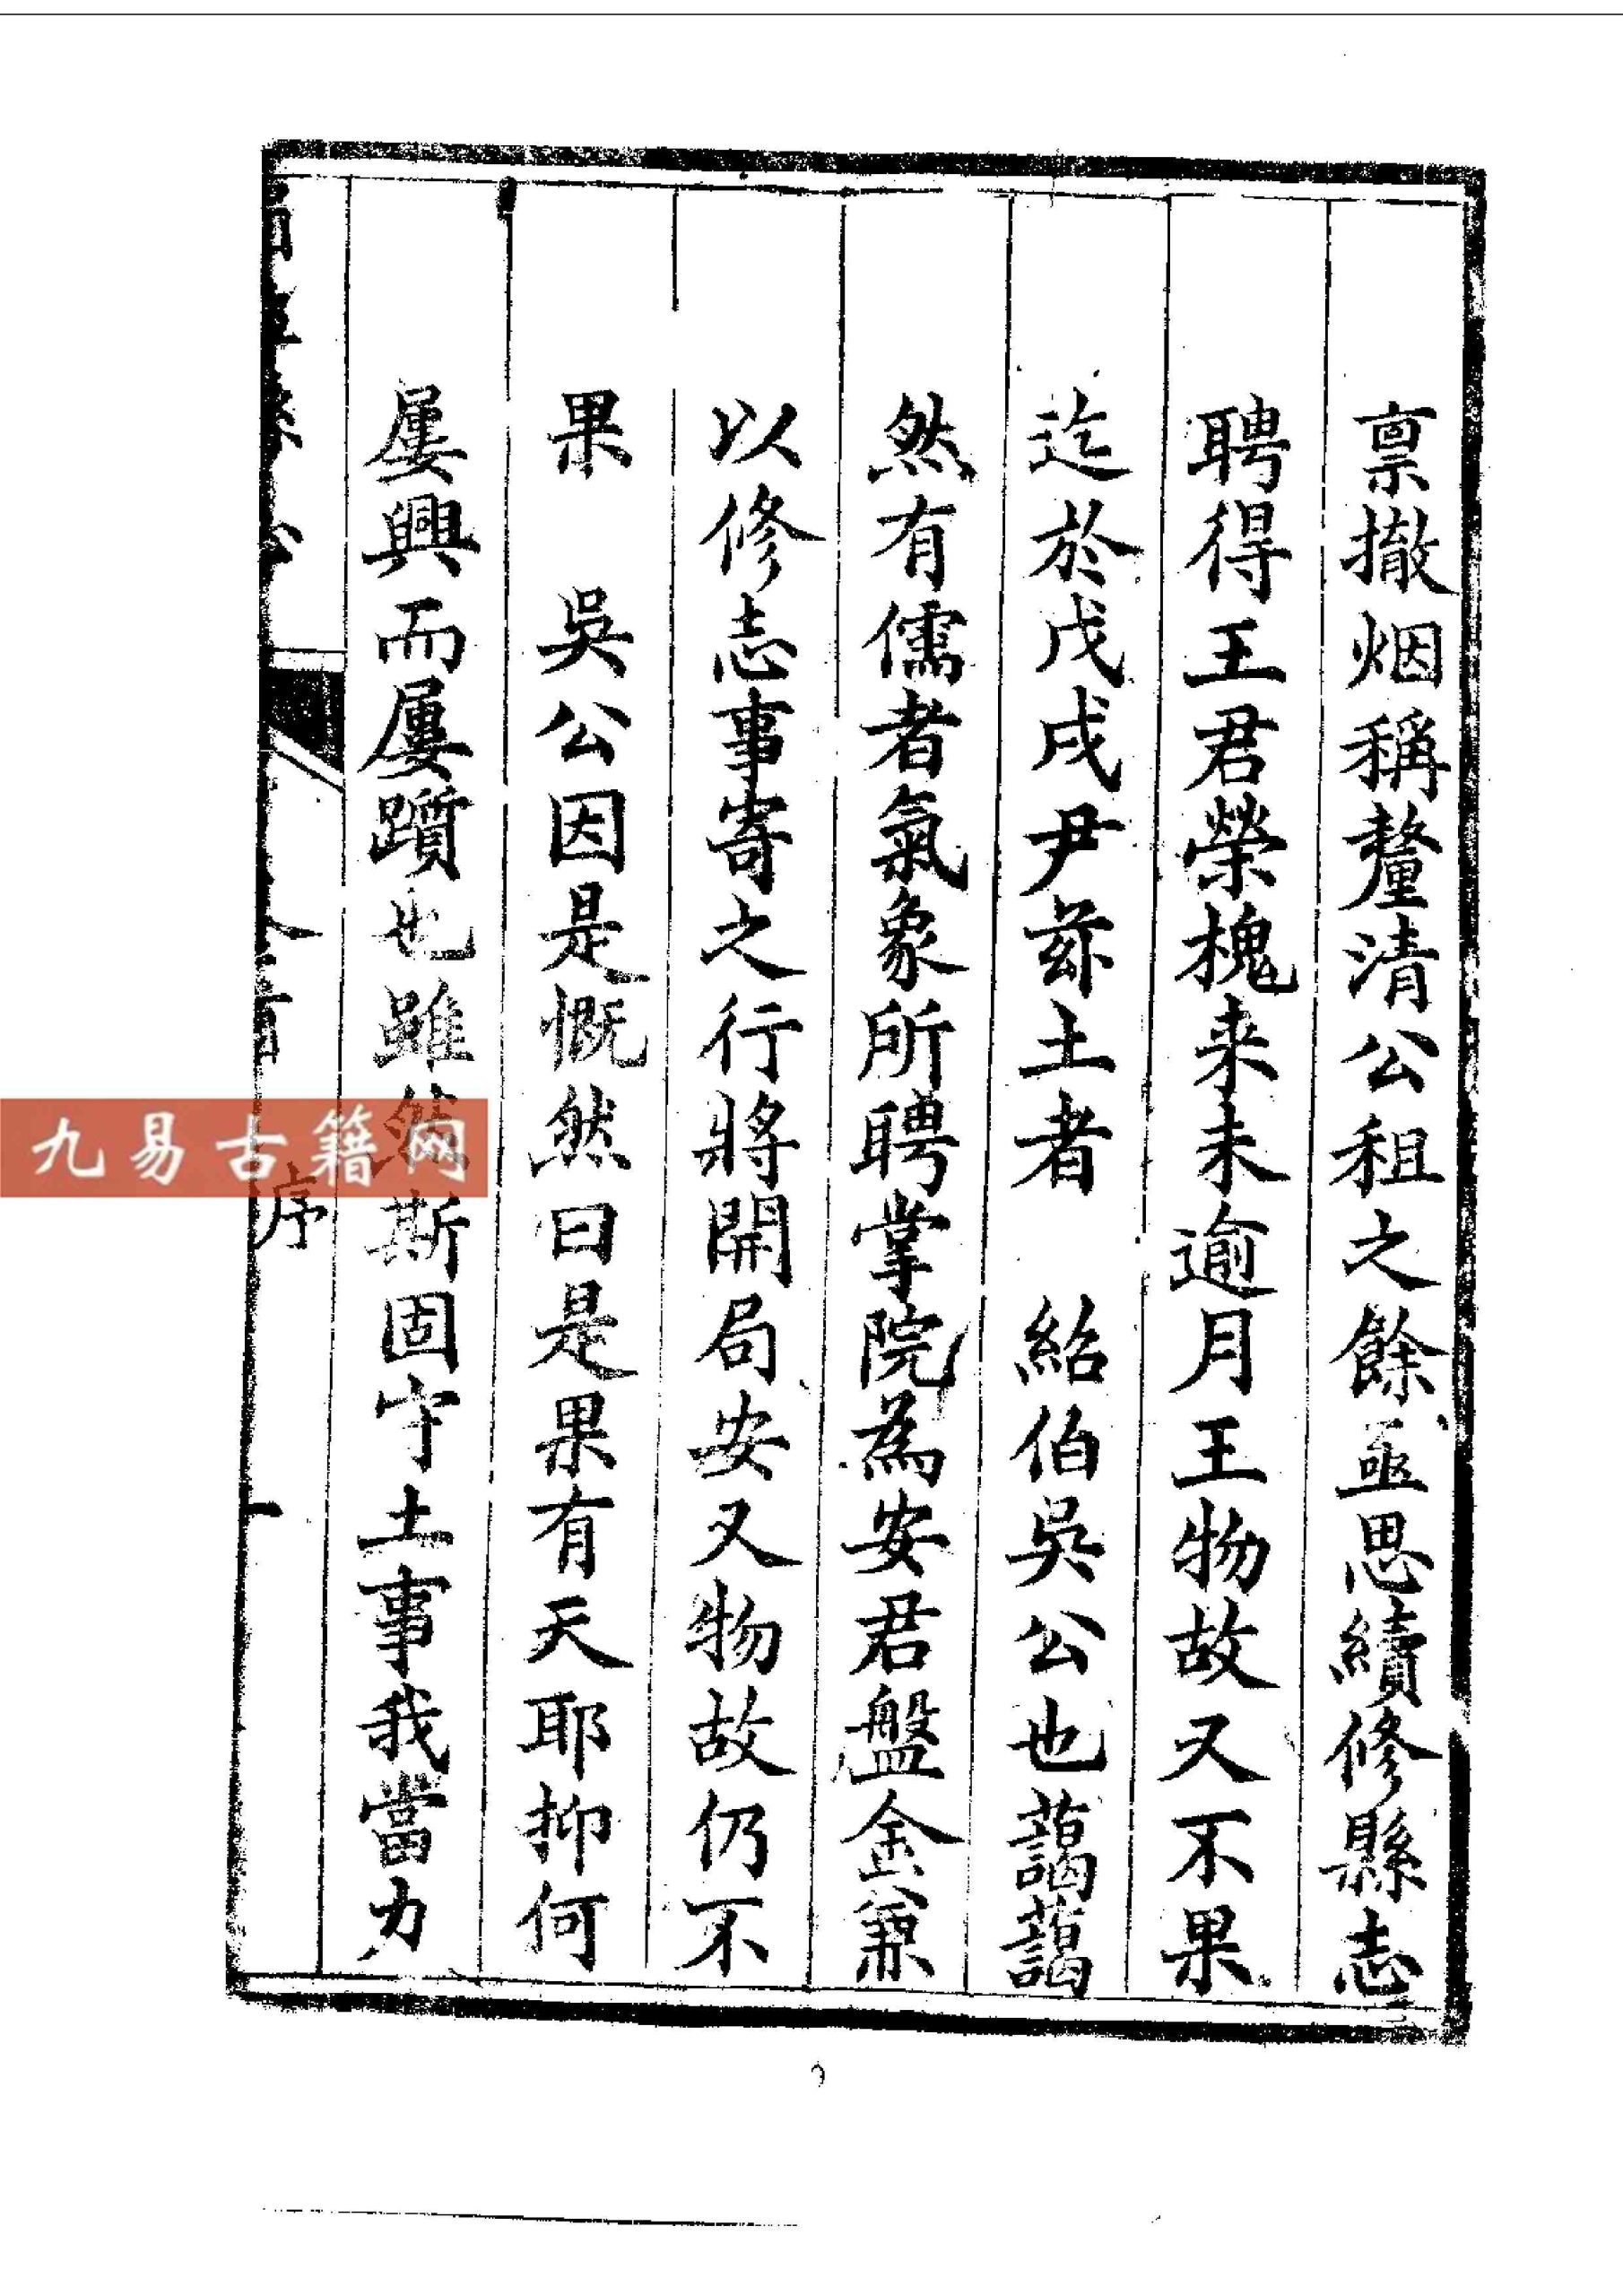 禀撤烟稱釐清公租之餘亟思續修縣志
聘得王君榮槐来未逾月王物故又不果
迄於戊戌尹茲土者　紹伯吳公也藹藹
然有儒者氣象所聘掌院為安君盤金兼
以修志事寄之行將開局安又物故仍不
果　吳公因是慨然曰是果有天耶抑何
屢興而屢躓也雖然斯固守土事我當力
序
九易古籍网